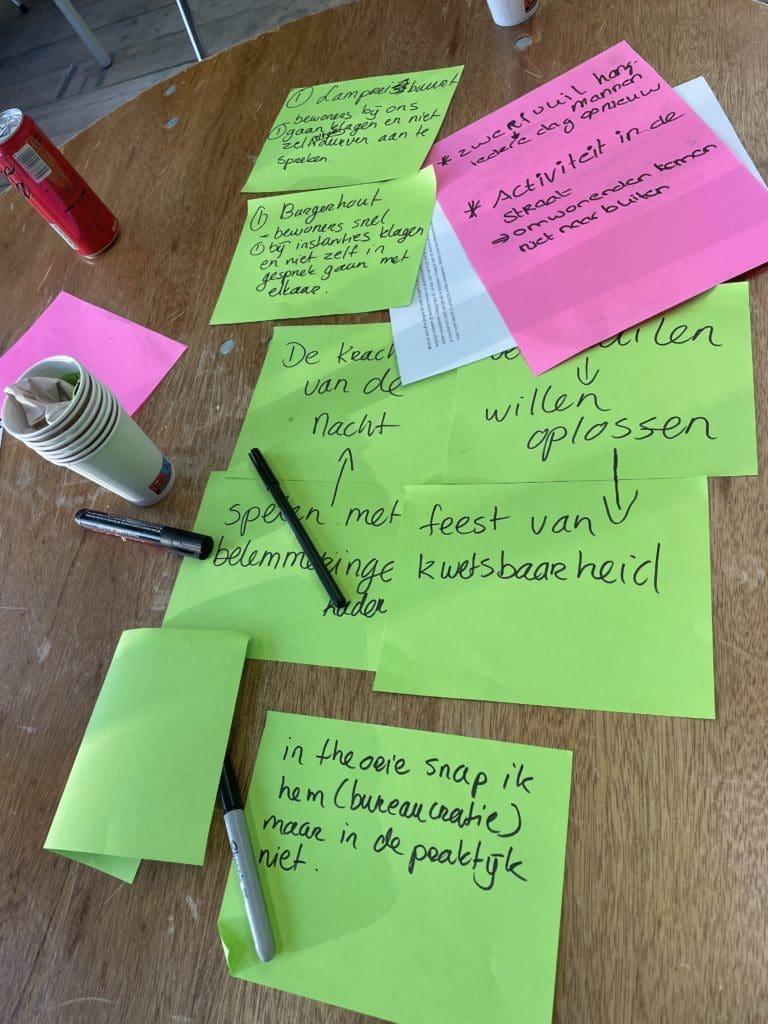 ① Lampreisbuurt
- bewoners bij ons
① gaan klagen en niet
zelf durven aan te
spreken.
* zwerfvuil hang-
mannen
iedere dag opnieuw
* Activiteit in de
straat
⇒ omwonenden komen
niet naar buiten
① Burgerhout
- bewoners snel
① bij instanties klagen
en niet zelf in
gesprek gaan met
elkaar.
De krach
van de
nacht
↑
spelen met
belemmeringe
kader
↓
willen
oplossen
↓
feest van
kwetsbaarheid
in theorie snap ik
hem (bureaucratie)
maar in de praktijk
niet.